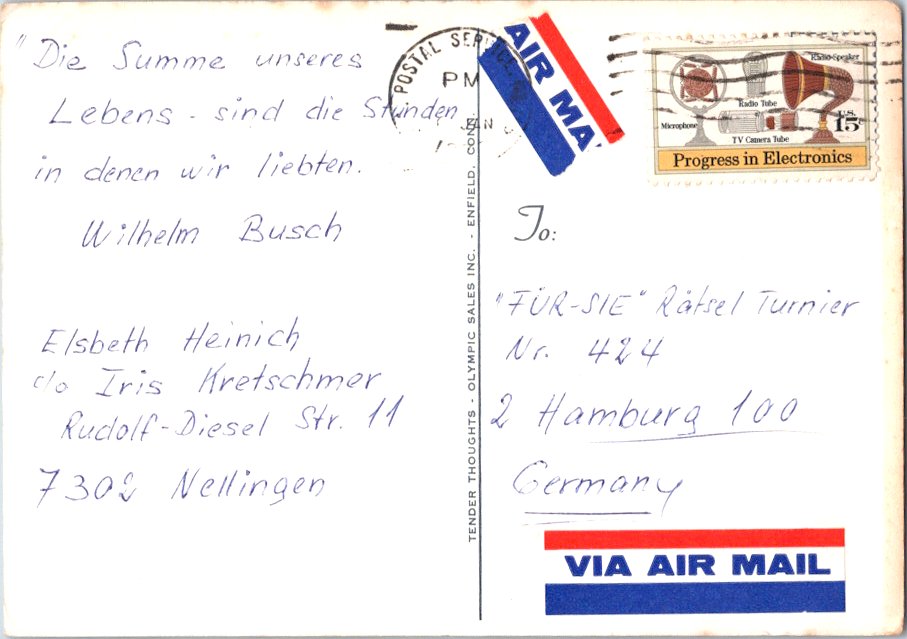 "Die Summe unseres
Lebens - sind die Stunden
in denen wir liebten.
Wilhelm Busch
Elsbeth Heinich
c/o Iris Kretschmer
Rudolf-Diesel Str. 11
7302 Nellingen
TENDER THOUGHTS - OLYMPIC SALES INC. - ENFIELD, CONN
POSTAL SERVICE
PM
JAN
AIR MA
Radio Speaker
Radio Tube
Microphone
TV Camera Tube
U.S.
15
Progress in Electronics
To:
"FÜR-SIE" Rätsel Turnier
Nr. 424
2 Hamburg 100
Germany
VIA AIR MAIL